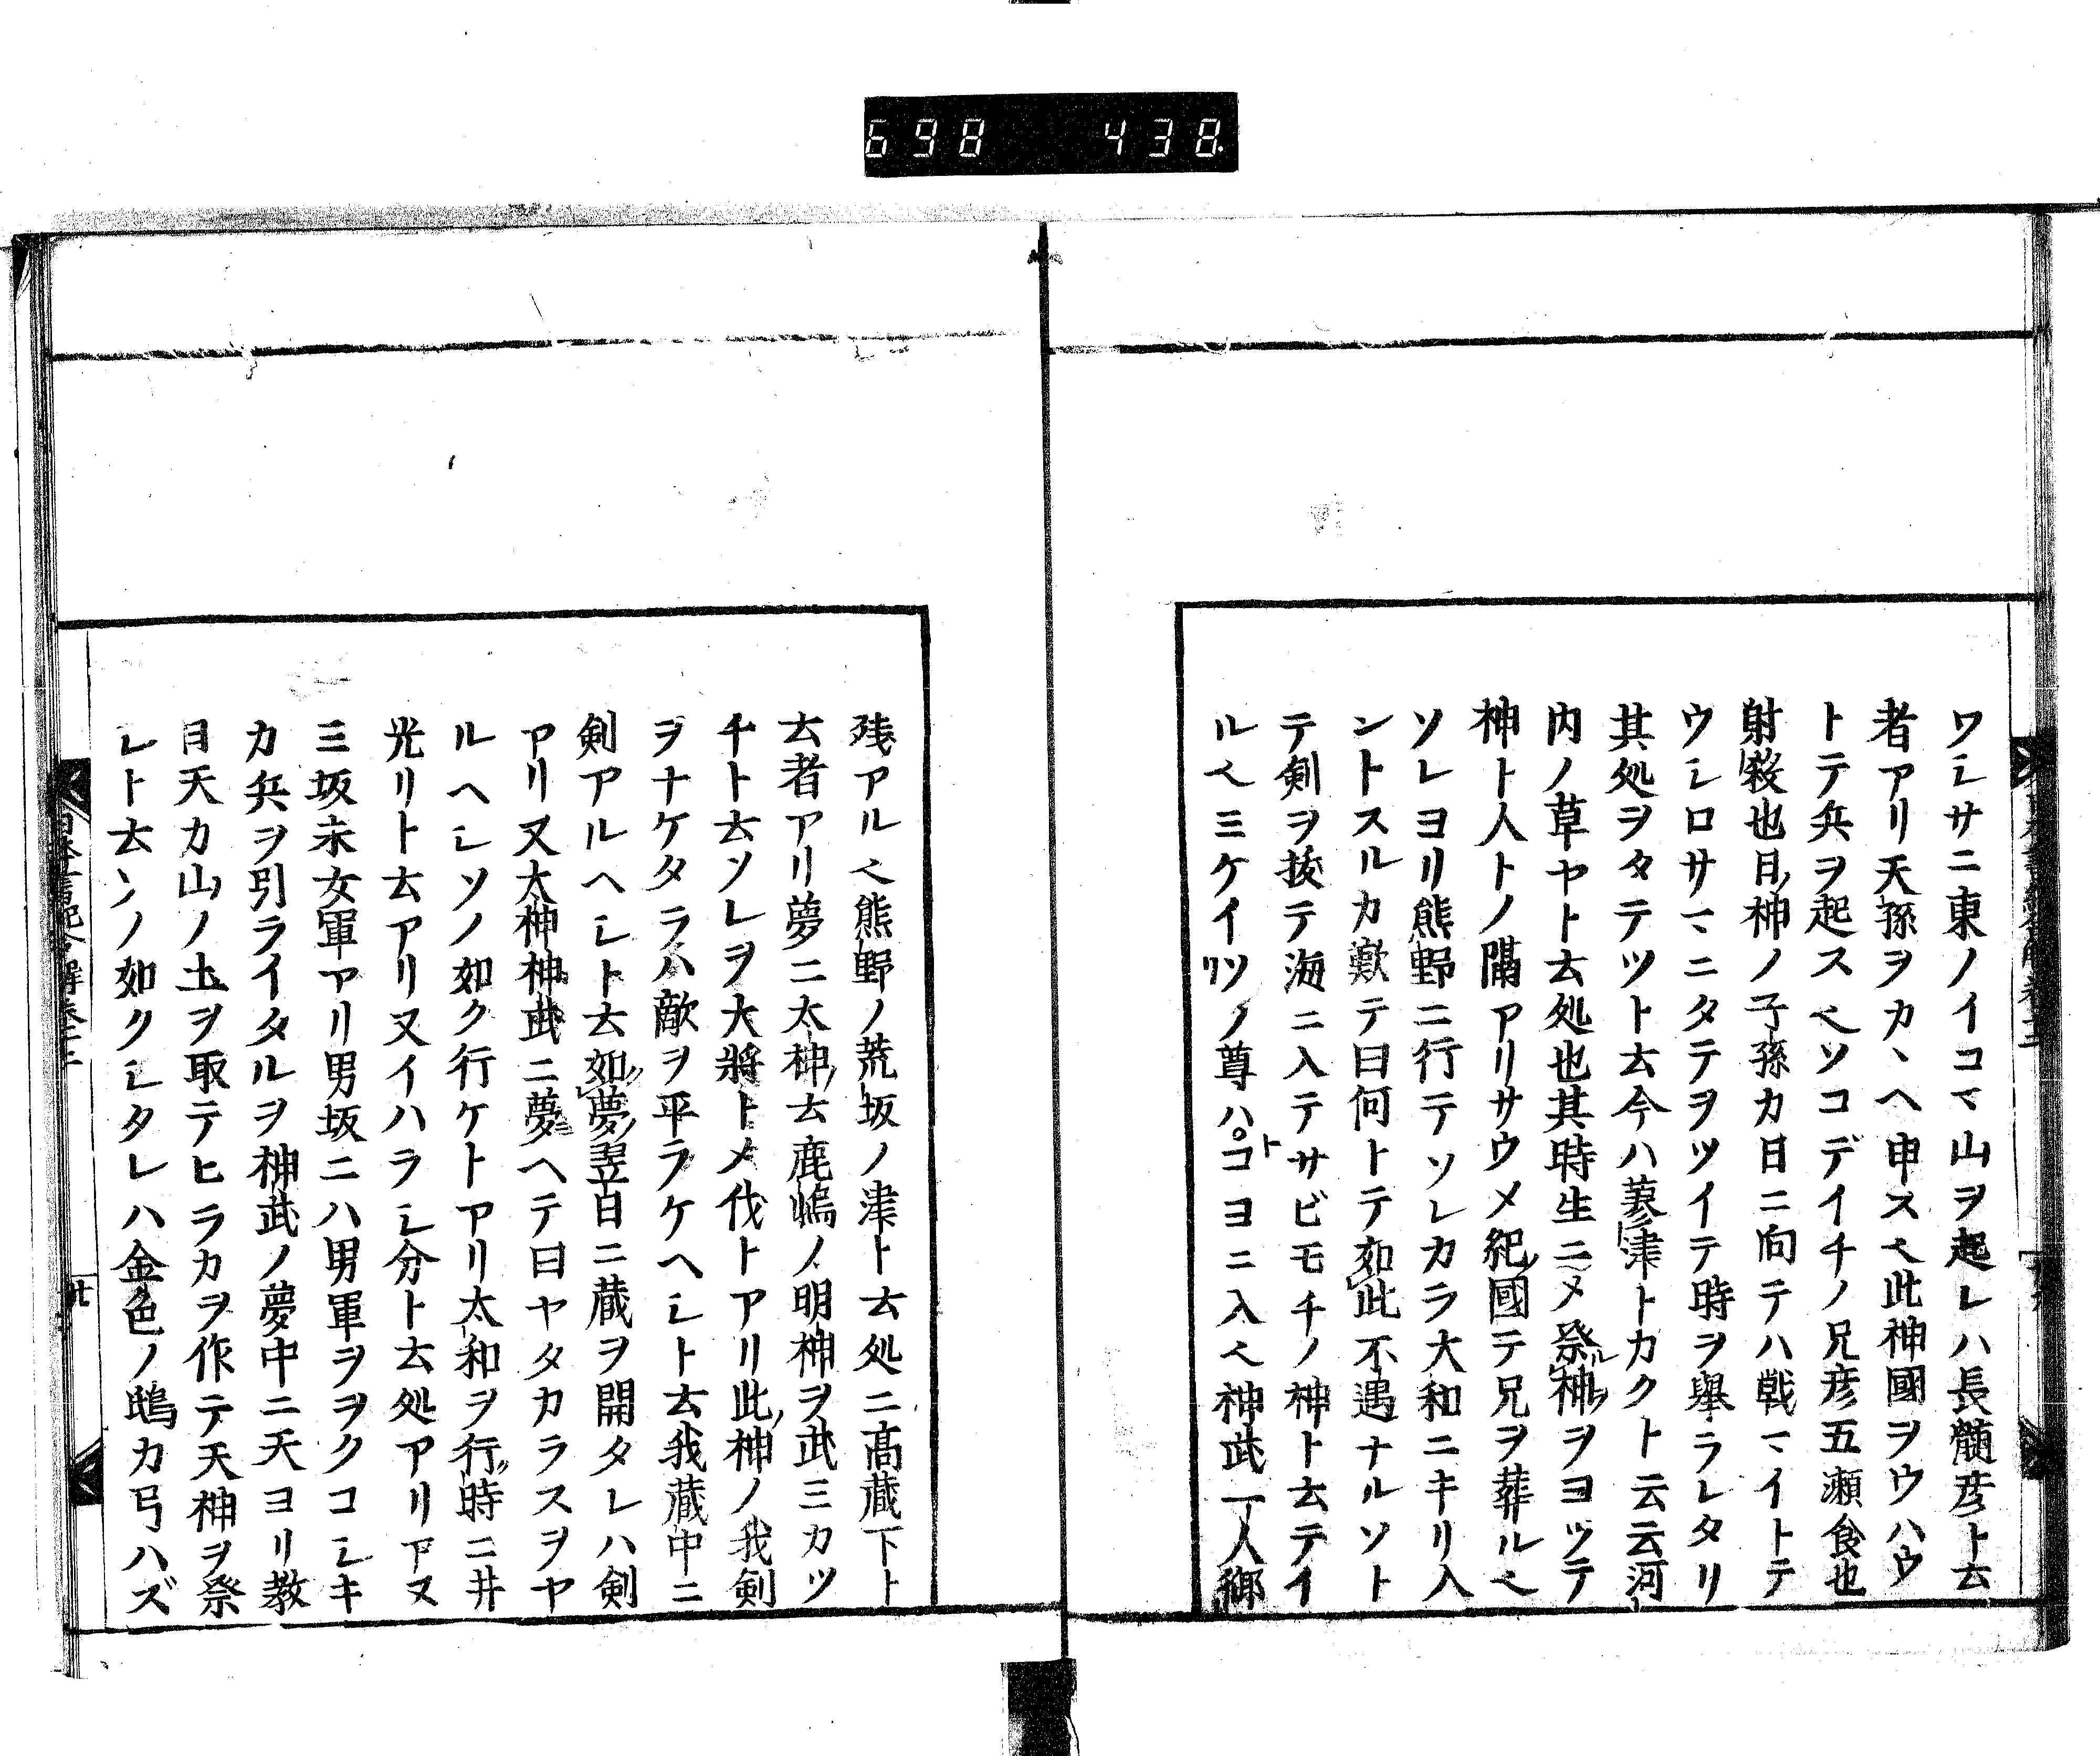 698 438
ワシサニ東ノイコマ山ヲ起レハ長髄彦ト云
者アリ天孫ヲカヽヘ申ス〆此神國ヲウハウ
トテ兵ヲ起ス〆ソコデイチノ兄彦五瀬食也
射殺也日神ノ子孫カ日ニ向テハ戦マイトテ
ウシロサマニタテヲツイテ時ヲ擧ラレタリ
其処ヲタテツト云今ハ蓼津トカクト云云河
内ノ草ヤト云処也其時生ニメ祭神ヲヨツテ
神ト人トノ隔アリサウメ紀國テ兄ヲ葬ル〆
ソレヨリ熊野ニ行テソレカラ大和ニキリ入
ントスルカ歎テ曰何トテ如此不遇ナルソト
テ剣ヲ抜テ海ニ入テサビモチノ神ト云テイ
ル〆ミケイリソノ尊ハトコヨニ入〆神武一人御
残アル〆熊野ノ荒坂ノ津ト云処ニ髙蔵下ト
云者アリ夢ニ太神云鹿嶋ノ明神ヲ武ミカツ
チト云ソレヲ大將トメ伐トアリ此神ノ我剣
ヲナケタラハ敵ヲ平ラケヘシト云我蔵中ニ
剣アルヘシト云如夢翌日ニ蔵ヲ開タレハ剣
アリ又太神神武ニ夢ヘテ曰ヤタカラスヲヤ
ルヘシソノ如ク行ケトアリ太和ヲ行時ニ井
光リト云アリ又イハラシ分ト云処アリ又
三坂末女軍アリ男坂ニハ男軍ヲヲクコシキ
カ兵ヲ引ライタルヲ神武ノ夢中ニ天ヨリ教
曰天カ山ノ土ヲ取テヒラカヲ作テ天神ヲ祭
レト云ソノ如クシタレハ金色ノ鵄カ弓ハズ
廿